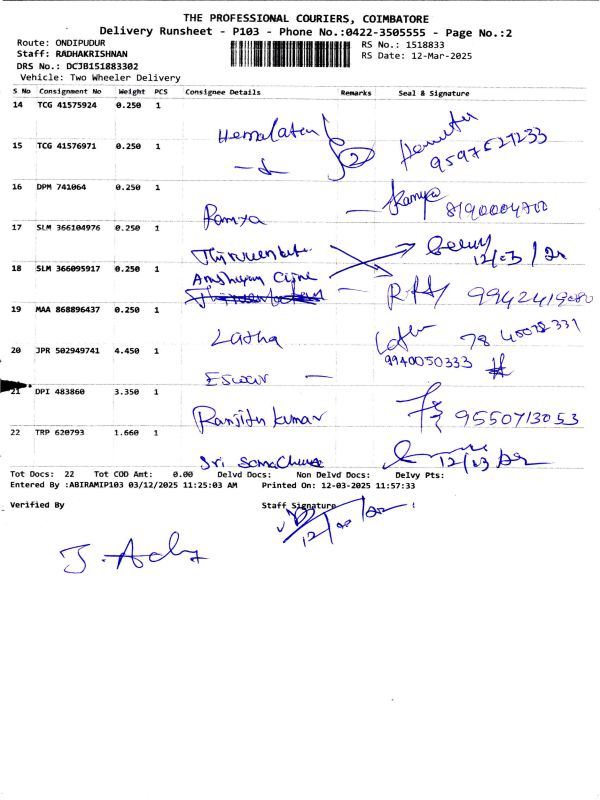 THE PROFESSIONAL COURIERS, COIMBATORE
Delivery Runsheet - P103 - Phone No.:0422-3505555 - Page No.:2
Route: ONDIPUDUR RS No.: 1518833
Staff: RADHAKRISHNAN RS Date: 12-Mar-2025
DRS No.: DCJB151883302
Vehicle: Two Wheeler Delivery
S No Consignment No Weight PCS Consignee Details Remarks Seal & Signature
14 TCG 41575924 0.250 1
Hemalatha 2
15 TCG 41576971 0.250 1
9597527233
16 DPM 741064 0.250 1
Ramya 8190004700
17 SLM 366104976 0.250 1
12/03/
18 SLM 366095917 0.250 1
9942419080
19 MAA 868896437 0.250 1
Latha
20 JPR 502949741 4.450 1
9940050333
Eswar
21 DPI 483860 3.350 1
Ranjith Kumar 9550713053
22 TRP 620793 1.660 1
Sri 12/03
Tot Docs: 22 Tot COD Amt: 0.00 Delvd Docs: Non Delvd Docs: Delvy Pts:
Entered By :ABIRAMIP103 03/12/2025 11:25:03 AM Printed On: 12-03-2025 11:57:33
Verified By Staff Signature